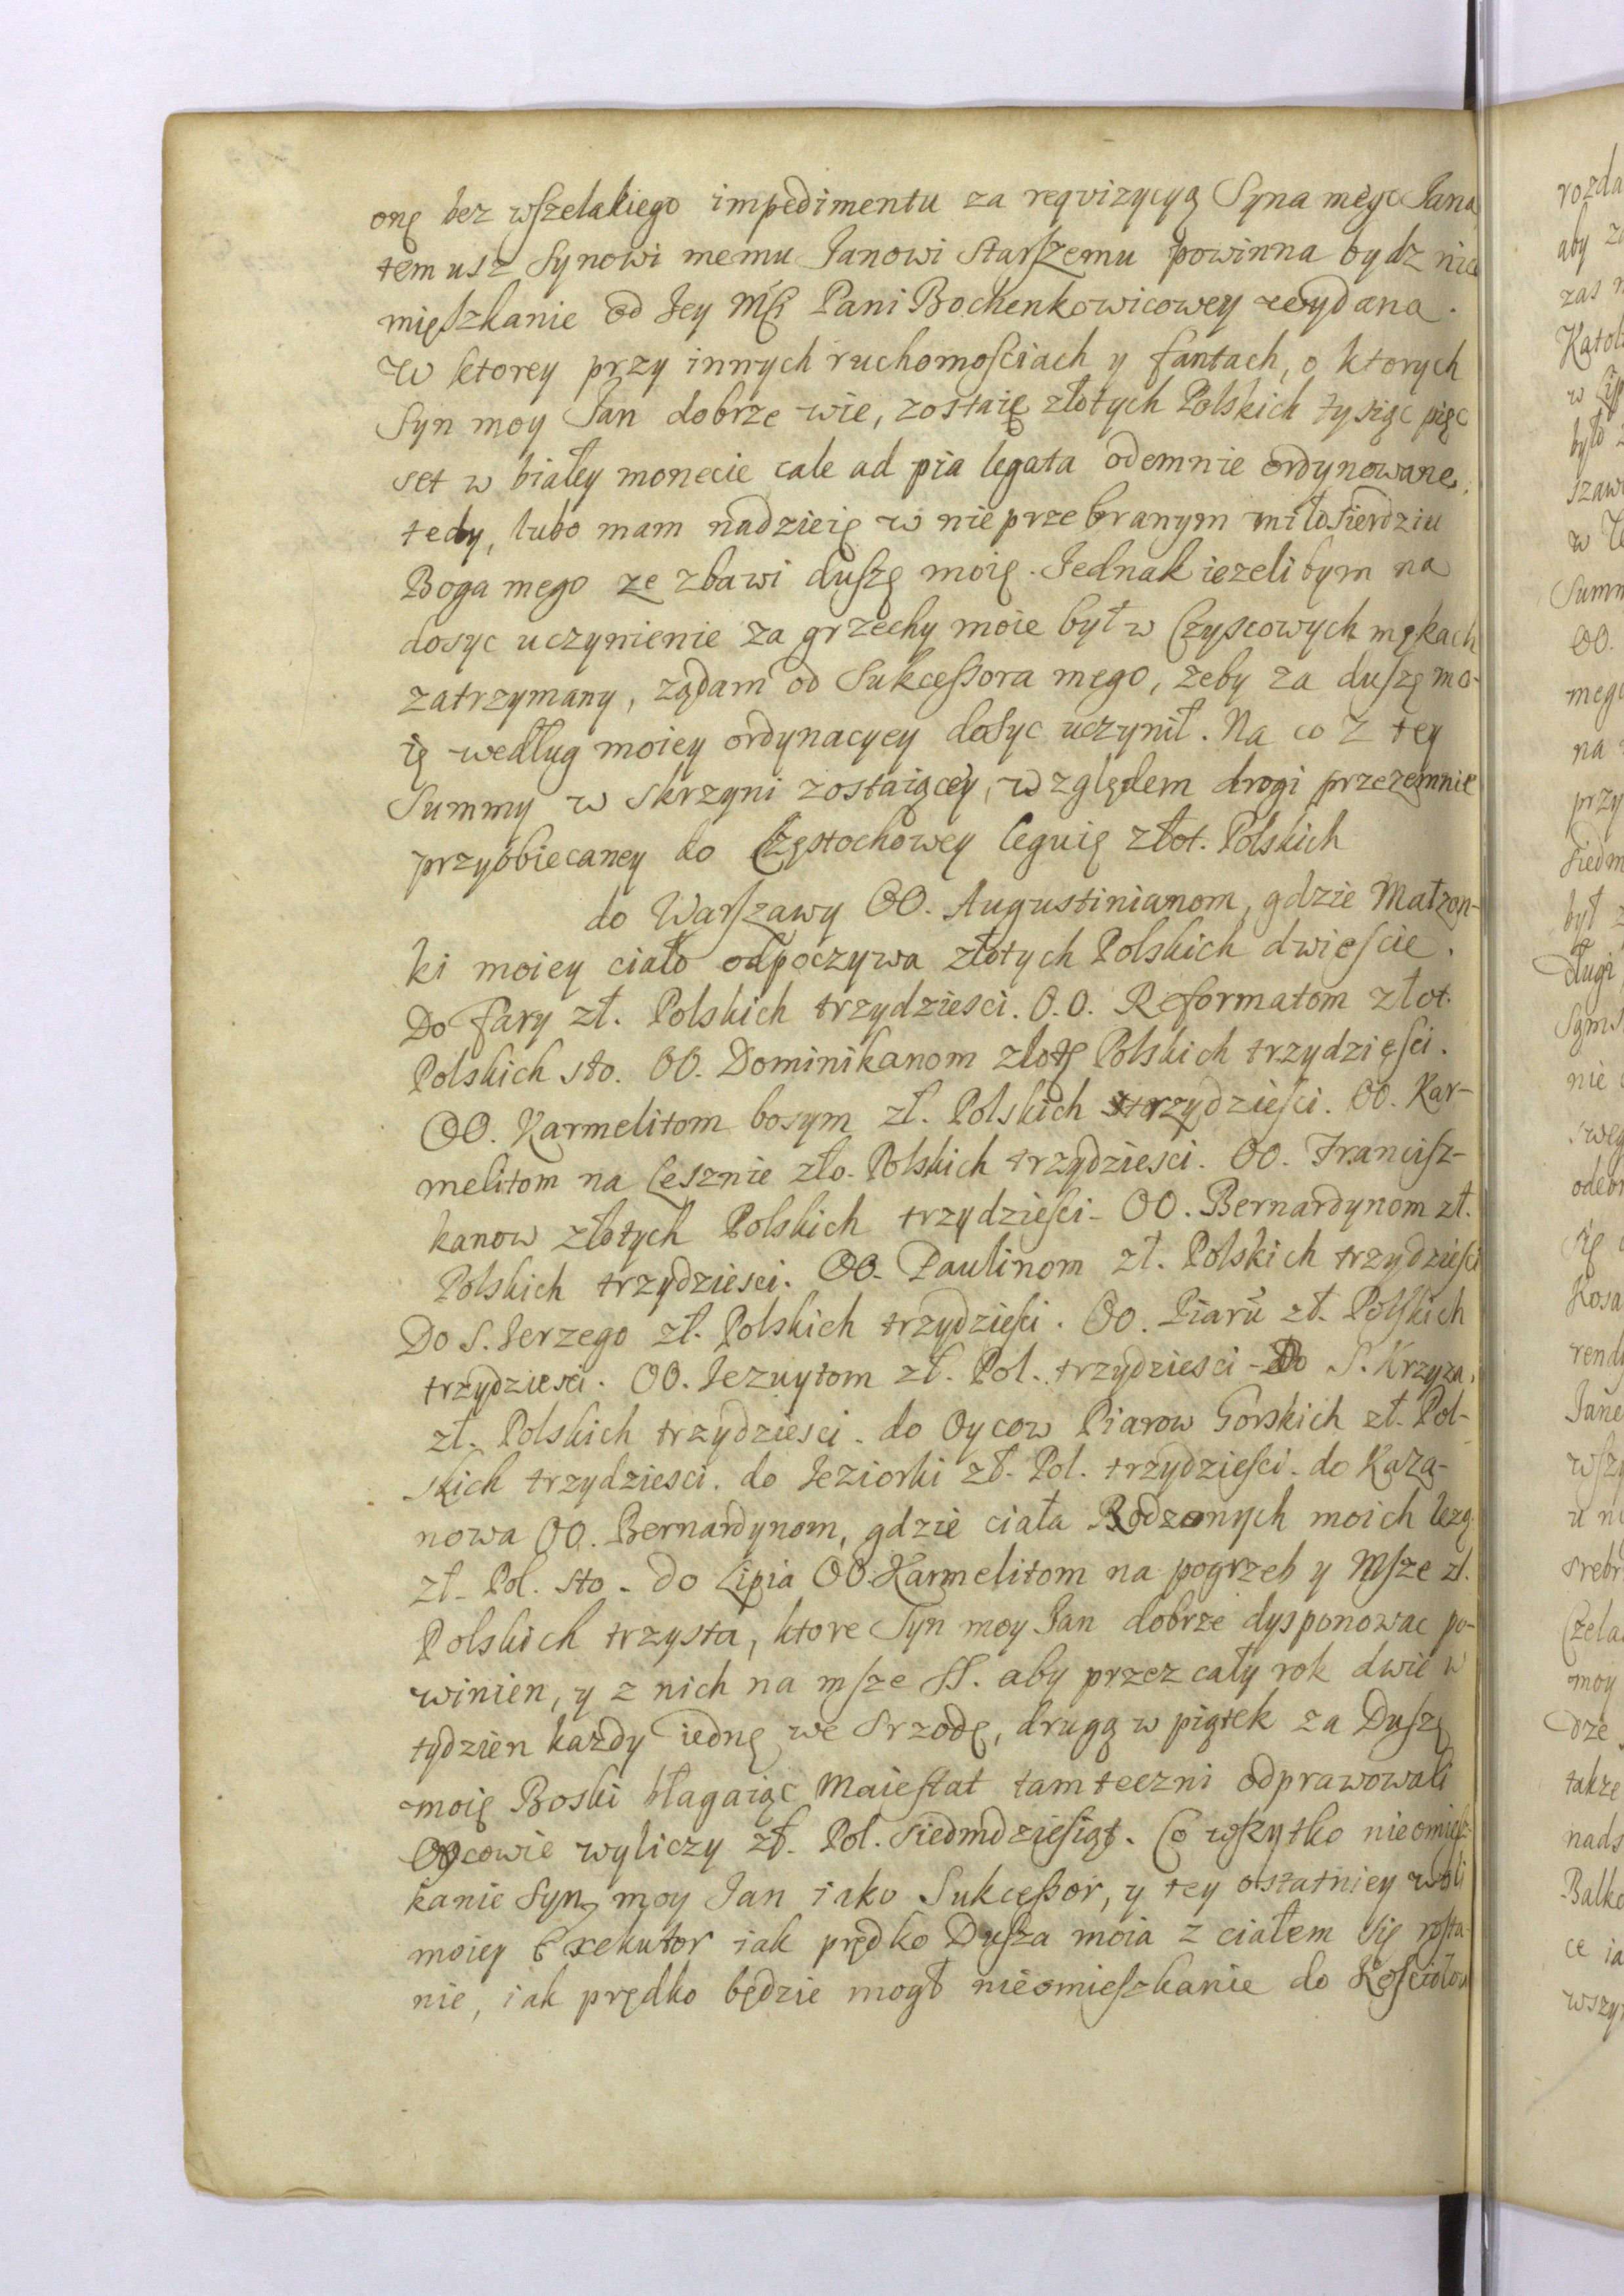 onę bez wszelakiego impedimentu za reqvizycyą Syna mego Jana
temusz Synowi memu Janowi Starszemu powinna bydz nie
mięszkanie od Jey Mści Pani Bochenkowicowey wydana.
W ktorey przy innych ruchomościach y fantach, o ktorych
Syn moy Jan dobrze wie, zostaię złotych Polskich tysiąc pięc
set w białey monecie cale ad pia legata odemnie ordynowane,
tedy, lubo mam nadzieię w nieprzebranym miłosierdziu
Boga mego ze zbawi duszę moię. Jednak iezelibym na
dosyc uczynienie za grzechy moie był w Czyscowych mękach
zatrzymany, ządam od Sukcessora mego, zeby za duszę mo-
ię według moiey ordynacyey dosyc uczynił. Na co z tey
Summy w skrzyni zostaiącey, względem drogi przezemnie
przyobiecaney do Częstochowey leguię złot. Polskich
do Warszawy OO. Augustinianom, gdzie Małzon-
ki moiey ciało odpoczywa złotych Polskich dwieście.
Do Fary zł. Polskich trzydziesci. O.O. Reformatom złot.
Polskich sto. OO. Dominikanom złoty Polskich trzydzięści.
OO. Karmelitom bosym zł. Polskich trzydzieści. OO. Kar-
melitom na Lesznie zło. Polskich trzydziesci. OO. Francisz-
kanow złotych Polskich trzydzieści - OO. Bernardynom zł.
Polskich trzydziesci. OO. Paulinom zł. Polskich trzydzieści
Do S. Jerzego zł. Polskich trzydzieści. OO. Piarũ zł. Polskich
trzydziesci. OO. Jezuytom zł. Pol. trzydziesci - Do S. Krzyza.
zł. Polskich trzydziesci. do Oycow Piarow Gorskich zł. Pol-
skich trzydziesci. do Jeziorki zł. Pol. trzydzieści. do Kaza-
nowa OO. Bernardynom, gdzie ciała Rodzonych moich lezą
zł. Pol. sto. do Lipia OO. Karmelitom na pogrzeb y Msze zł.
Polskich trzysta, ktore Syn moy Jan dobrze dysponowac po-
winien, y z nich na msze SS. aby przez cały rok dwie w
tydzien kazdy iednę we Srzodę, drugą w piątek za Duszę
moię Boski błagaiąc Maiestat tamteczni odprawowali
Oycowie wyliczy zł. Pol. siedmdziesiąt. Co wszytko nieomiesz-
kanie Syn moy Jan iako Sukcessor, y tey ostatniey woli
moiey Exekutor iak prędko Dusza moia z ciałem się rosta-
nie, iak prędko będzie mogł nieomieszkanie do Kosciołow
rozda
aby
zas
Katol
było
szaw
Summ
OO.
mego
na
przy
siedm
był
długi
nie
sweg
się
Kosa
Jane
wszy
srebr
moy
dze
takze
nads
Balko
ce ia
wszy